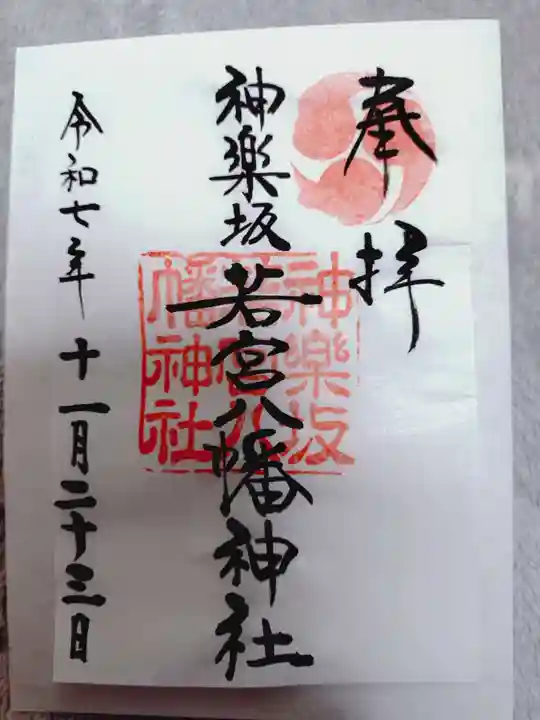 奉拝
神楽坂若宮八幡神社
神樂坂
若宮八
幡神社
令和七年十一月二十三日